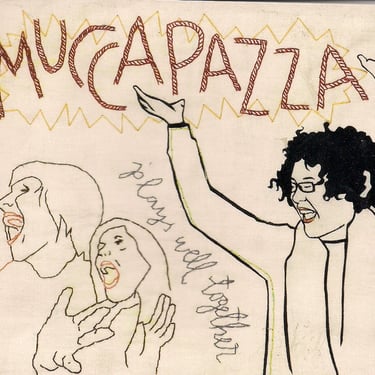 MUCCAPAZZA
plays well together